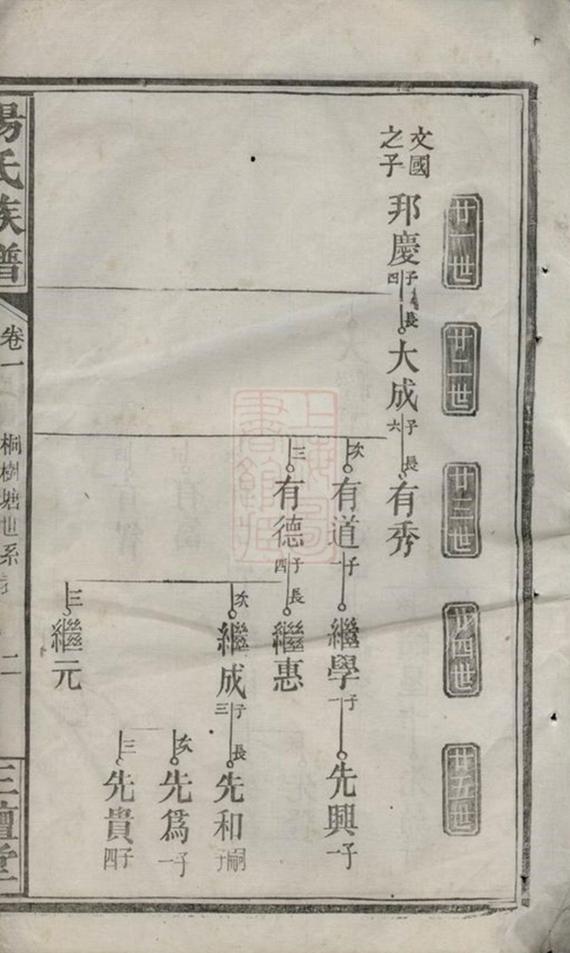 廿一世
廿二世
廿三世
廿四世
廿五世
文國
之子
邦慶
子四
長
大成
子六
長
有秀
次
有道
子一
繼學
子一
先興
子一
三
有德
子四
長
繼惠
次
繼成
子三
長
先和
嗣子
次
先爲
子一
三
先貴
子四
三
繼元
楊氏族譜
卷一
桐樹塘世系
二
三鱣堂